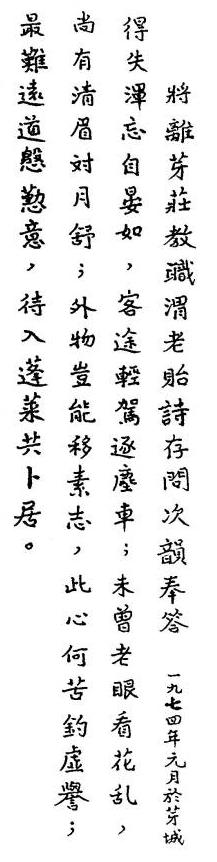 將離芽莊教職渭老貽詩存問次韻奉答 一九七四年元月於芽城
得失渾忘自晏如，客途輕駕逐塵車；未曾老眼看花乱，
尚有清眉对月舒；外物豈能移素志，此心何苦釣虛譽；
最難遠道慇懃意，待入蓬萊共卜居。